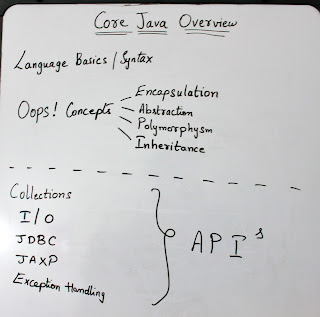 Core Java Overview
Language Basics / Syntax
Oops! Concepts
Encapsulation
Abstraction
Polymorphysm
Inheritance
Collections
I/O
JDBC
JAXP
Exception Handling
API s